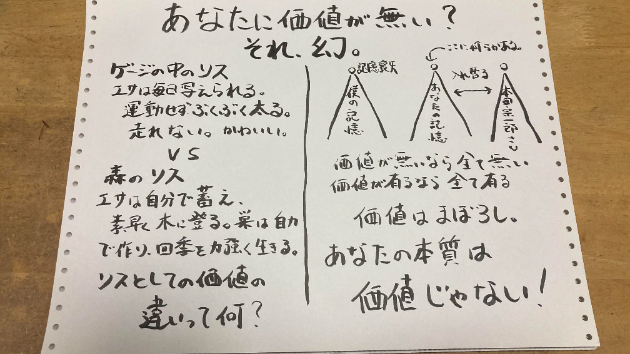 あなたに価値が無い?
それ、幻。
ゲージの中のリス
エサは毎日与えられる。
運動せずぶくぶく太る。
走れない。かわいい。
VS
森のリス
エサは自分で蓄え、
素早く木に登る。巣は自力
で作り、四季を力強く生きる。
リスとしての価値の
違いって何?
ここに何らかがある。
記憶喪失
僕の記憶
あなたの記憶
入れ替る
本田宗一郎さん
価値が無いなら全て無い
価値が有るなら全て有る
価値はまぼろし。
あなたの本質は
価値じゃない!